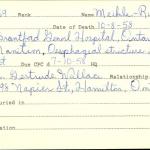 69 Rank Name Meikle-R
Date of Death 10-8-58
Brantford Genl Hospital, Ontar
Inanition, Oesphagial stricture,
Due CPC # 7-10-58 HQ
Gertrude Wallace Relationship
98 Napier St, Hamilton, Ont
uried in